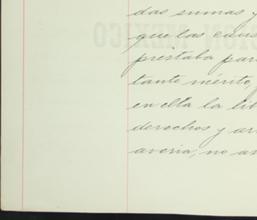 das sumas y
que las caus
prestaba par
tante mérito,
en ella la lib
derechos y ar
averia, no an